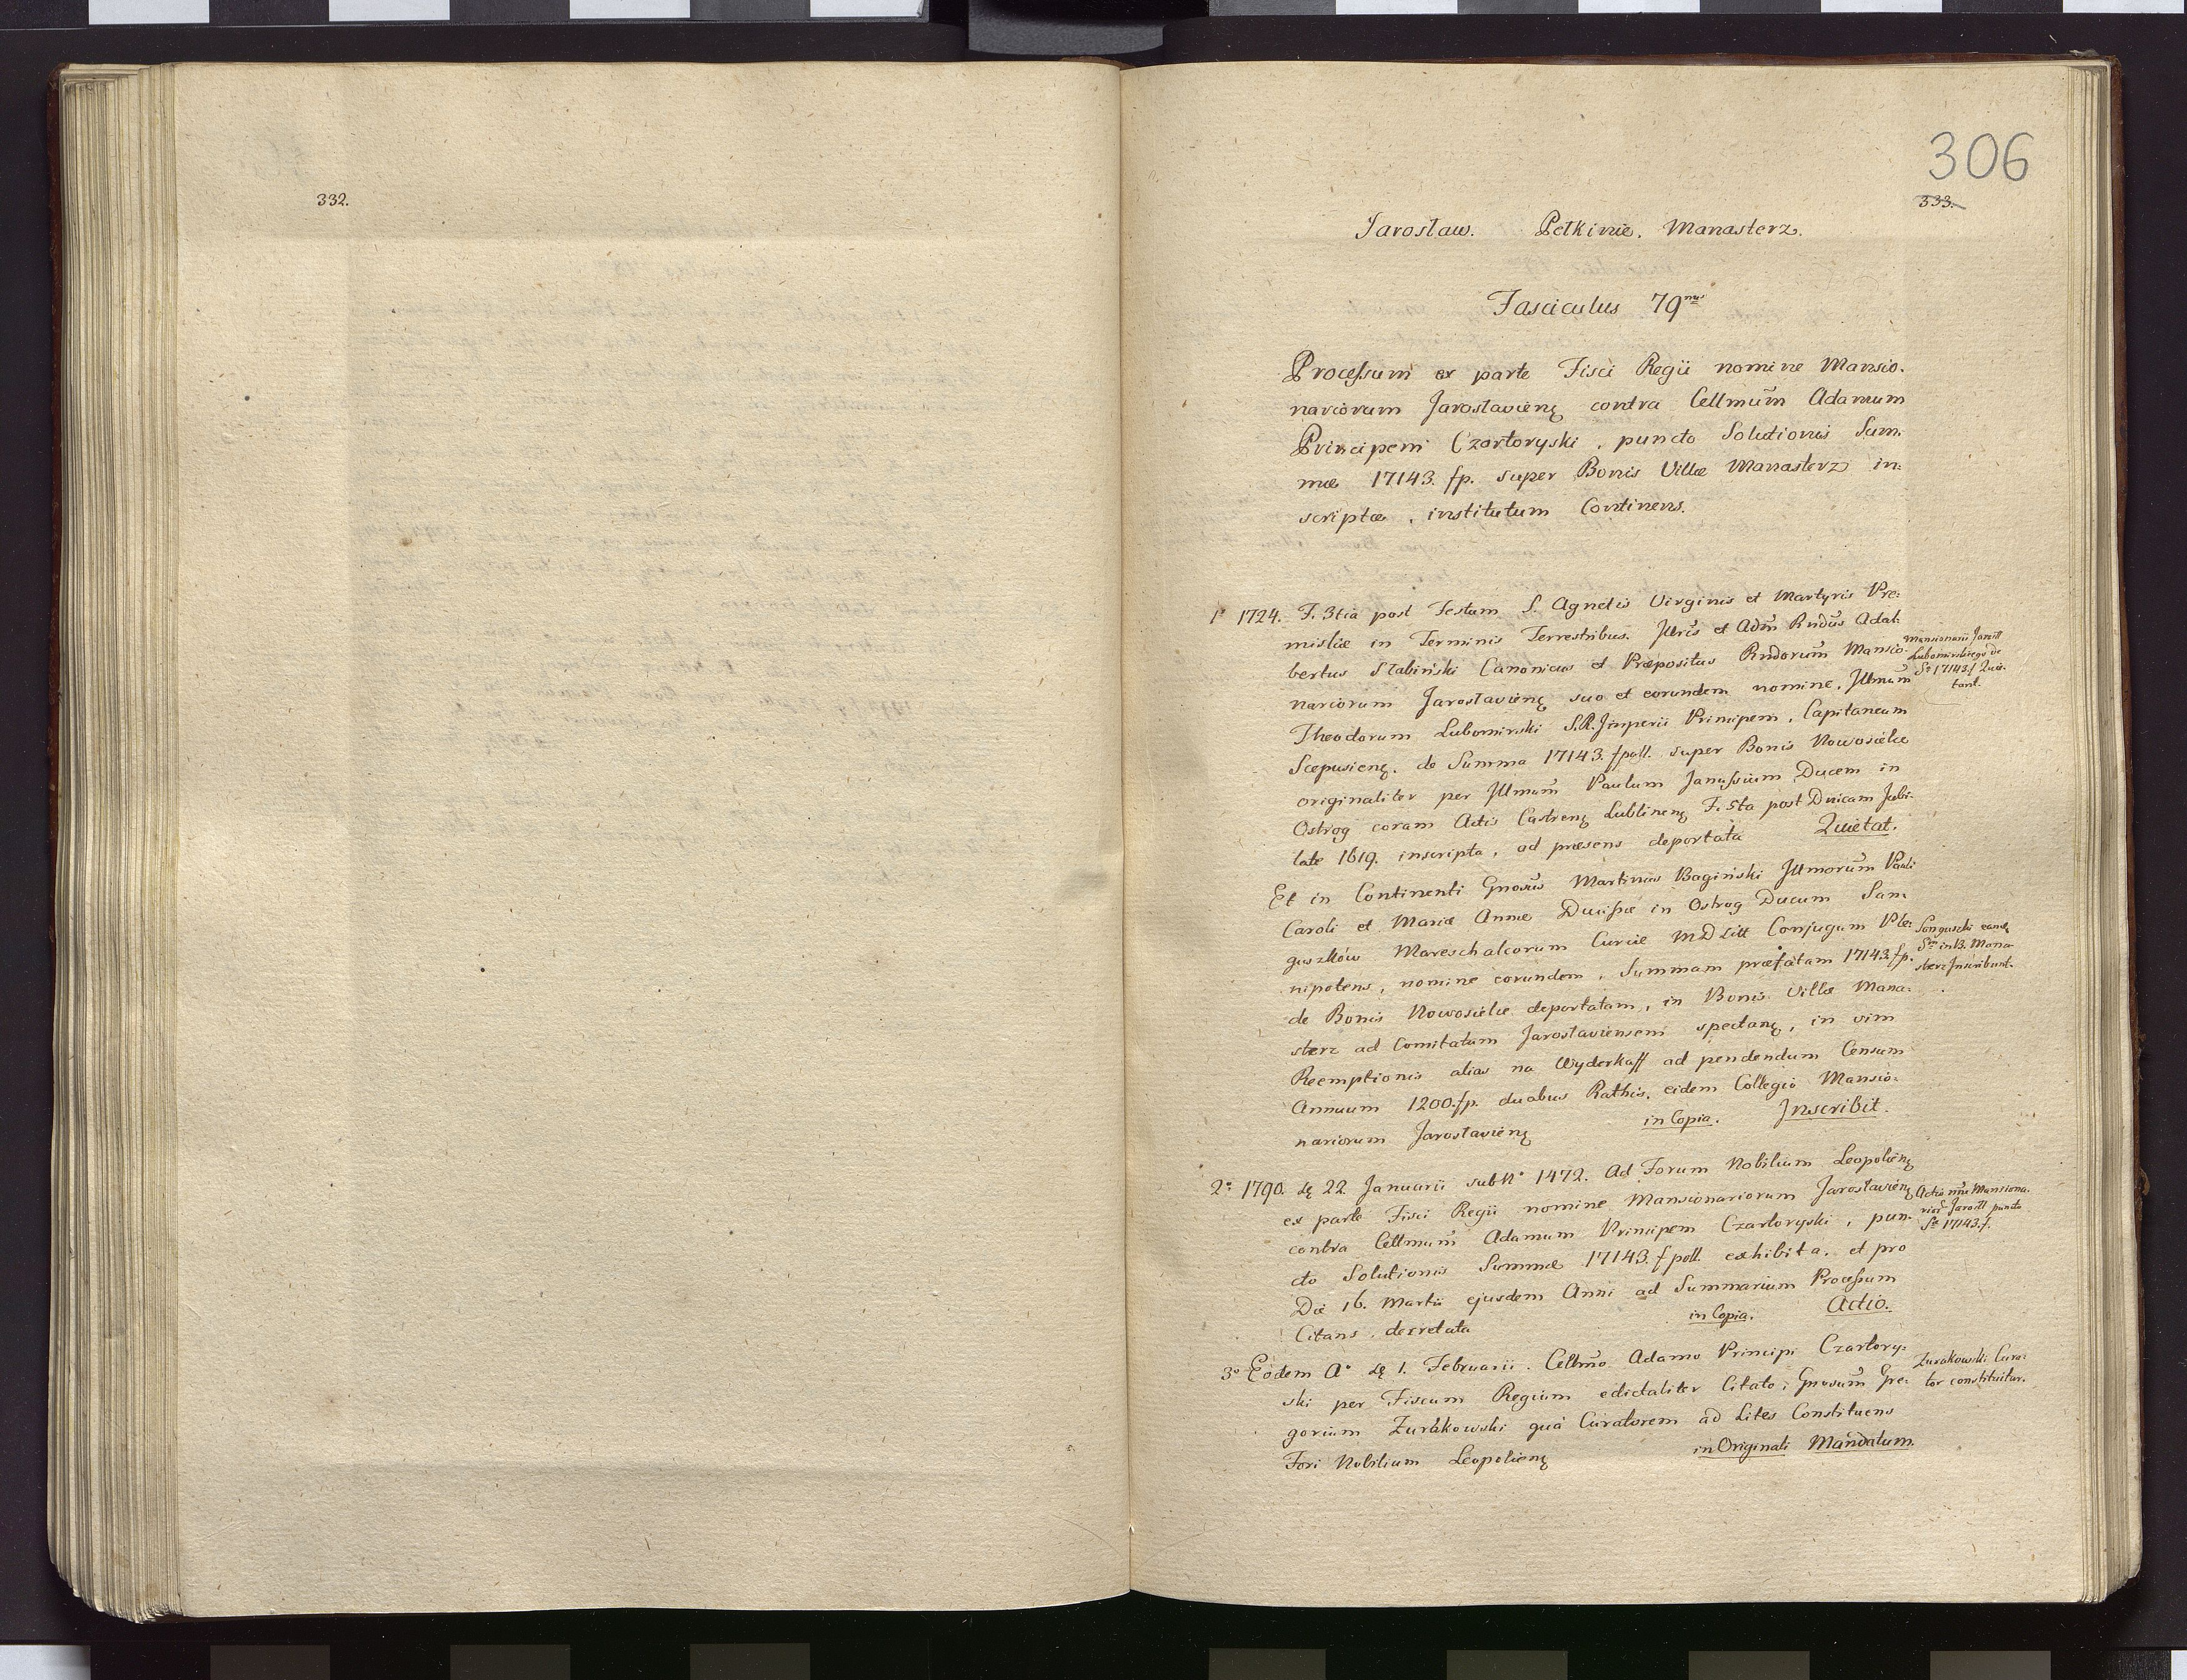 332.
306
333.
Jarosław. Pełkinie. Manasterz.
Fasciculus 79nus
Processum ex parte Fisci Regii nomine Mansio-
nariorum Jaroslavienę contra Cellmum Adamum
Principem Czartoryski, puncto Solutionis Sum-
mæ 17143. fp. super Bonis Villæ Manasterz in-
scriptæ, institutum Continens.
1º 1724. F. 3tia post Festum S. Agnetis Virginis et Martyris Pre-
misliæ in Terminis Terrestribus. Jllris et Adm Rndus Adal-
bertus Stabiński Canonicus et Præpositus Rndorum Mansio-
nariorum Jaroslavienę suo et eorundem nomine, Jllmum
Theodorum Lubomirski S.R.Jmperii Principem, Capitaneum
Scepusienę. de Summa 17143. fpoll. super Bonis Nowosielce
originaliter per Jllmum Paulum Janussium Ducem in
Ostrog coram Actis Castrenę Lublinenę F. 5ta post Dnicam Jubi-
late 1619. inscripta, ad præsens deportata Quietat.
Mansionarii Jarosll
Lubomirskiego de
Sª 17143 f Quie-
tant.
Et in Continenti Gnosus Martinus Bagiński Jllmorum Pauli
Caroli et Mariæ Annæ Ducissæ in Ostrog Ducum San-
guszków Mareschalcorum Curiæ MDLitt Conjugum Ple-
nipotens, nomine eorundem, Summam præfatam 17143. fp.
de Bonis Nowosielce deportatam, in Bonis Villæ Mana-
sterz ad Comitatum Jaroslaviensem spectanę, in vim
Reemptionis alias na Wyderkaff ad pendendum Censum
Annuum 1200. fp. duabus Rathis, eidem Collegio Mansio-
nariorum Jaroslavienę in Copia. Jnscribit.
Sanguscki eandę
Sm in B. Mana-
sterz Jnscribunt.
2º 1790. dę 22 Januarii sub Nº 1472. Ad Forum Nobilium Leopolienę
ex parte Fisci Regii nomine Mansionariorum Jaroslavienę
contra Cellmum Adamum Principem Czartoryski, pun-
cto Solutionis Summæ 17143. fpoll. exhibita, et pro
Die 16. Martii ejusdem Anni ad Summarium Processum
Citans, decretata in Copia. Actio.
Actio nne Mansiona-
rior Jarosll puncto
Sæ 17143. f.
3º Eodem Aº dę 1. Februarii. Cellmo Adamo Principi Czartory-
ski per Fiscum Regium edictaliter Citato, Gnosum Gre-
gorium Żurakowski quà Curatorem ad Lites Constituens
Fori Nobilium Leopolienę in Originali Mandatum.
Żurakowski Cura-
tor constituitur.